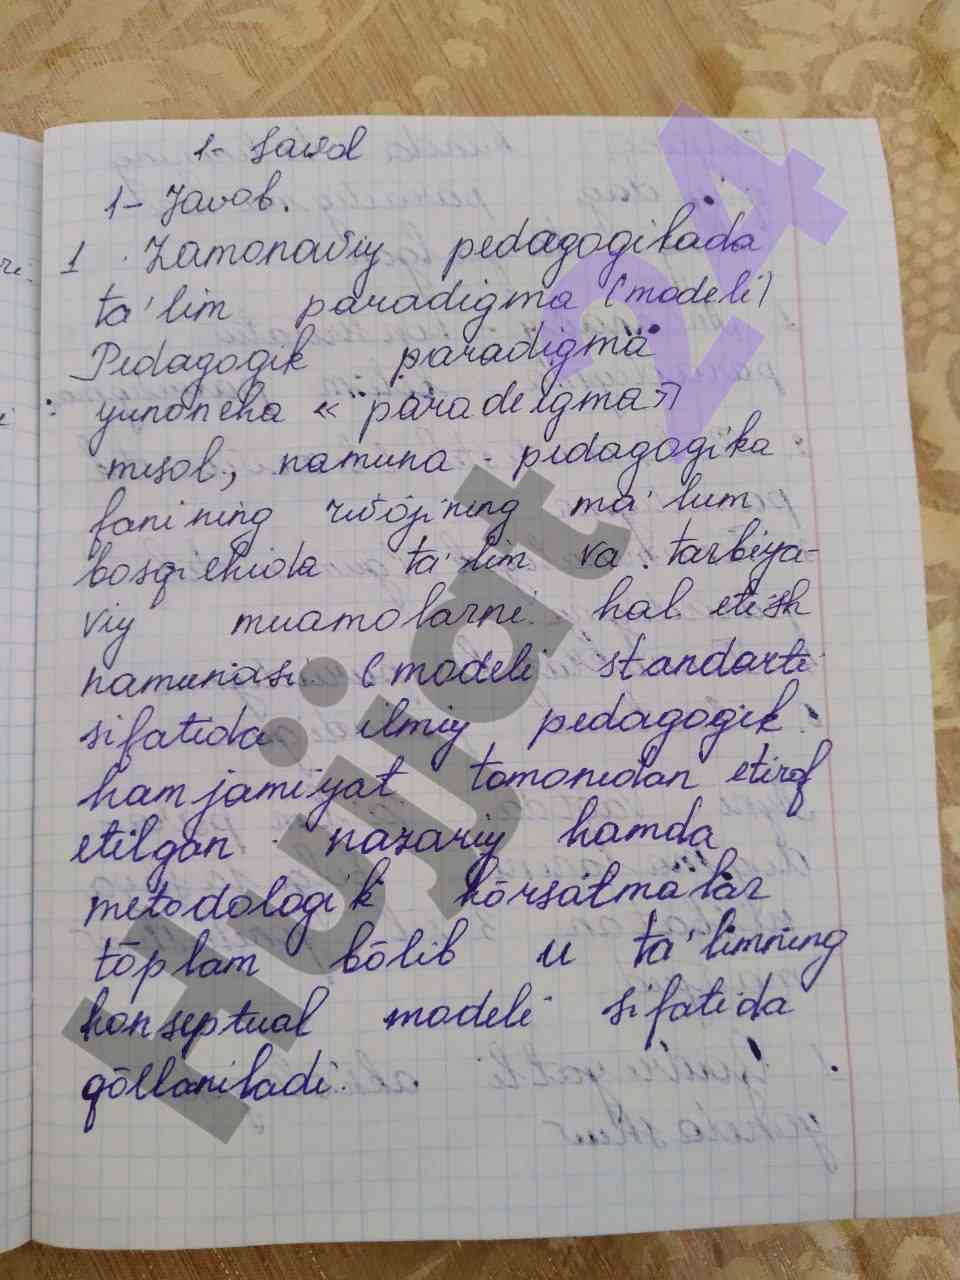 1- Savol
1- Javob.
1. Zamonaviy pedagogikada
ta'lim paradigma (modeli)
Pedagogik paradigma
yunoncha « paradeigma»
misol, namuna - pedagogika
fanining rivojining ma'lum
bosqichida ta'lim va tarbiya-
viy muamolarni hal etish
namunasi (modeli standarti
sifatida ilmiy pedagogik
hamjamiyat tomonidan etirof
etilgan nazariy hamda
metodologik kōrsatmalar
tōplam bōlib u ta'limning
konseptual modeli sifatida
qōllaniladi.
Hujjat 24